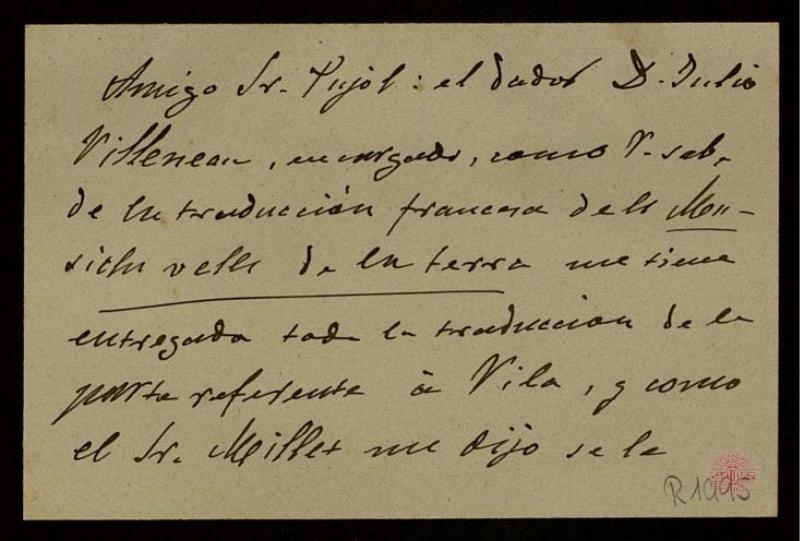 Amigo Sr. Pujol: el dador D. Julio
Villeneau, encargado, como V. sabe
de la traducción francesa dels Mú-
sichs vells de la terra me tiene
entregada toda la traduccion de la
parte referente á Vila, y como
el Sr. Millet me dijo se le